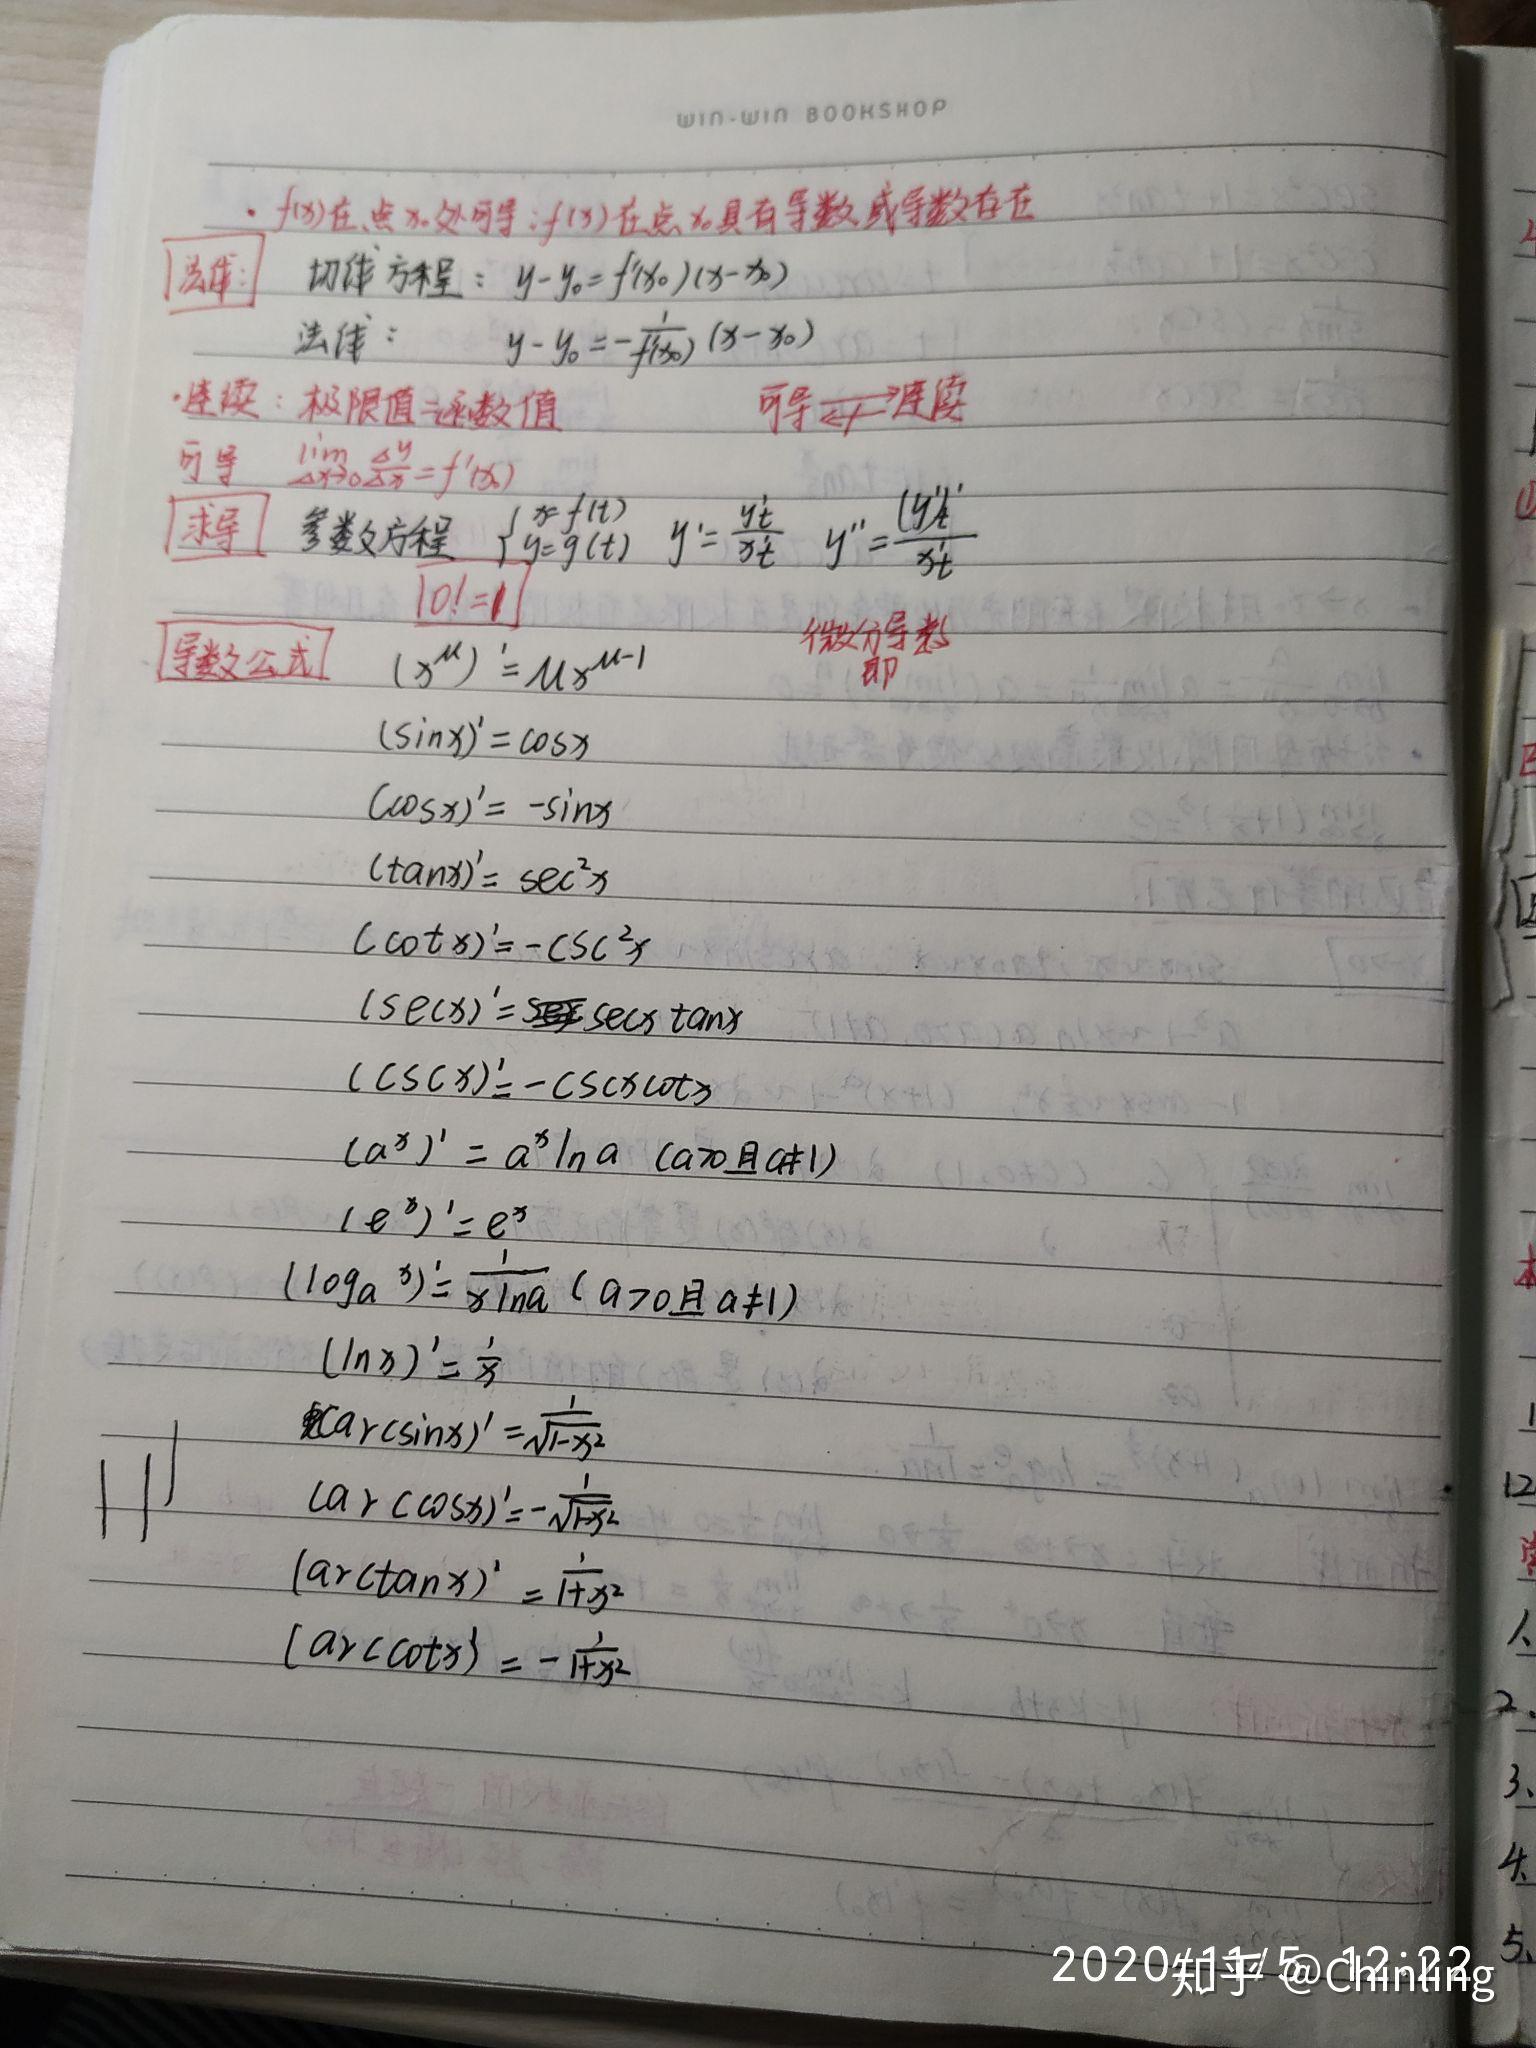 WIN-WIN BOOKSHOP
· f(x)在点x₀处可导:f(x)在点x₀具有导数或导数存在
法线: 切线方程: y-y₀=f'(x₀)(x-x₀)
法线: y-y₀=-1/f'(x₀) (x-x₀)
·连续: 极限值=函数值 可导⇄连续
可导 lim Δx→0 Δy/Δx=f'(x₀)
求导 参数方程 { x=f(t) y=g(t) y'=y't/x't y''=(y')t'/x't
0!=1
导数公式 (x^μ)'=μx^μ-1 微分导数
即
(sinx)'=cosx
(cosx)'=-sinx
(tanx)'=sec²x
(cotx)'=-csc²x
(secx)'=secx tanx
(cscx)'=-cscxcotx
(a^x)'=a^x lna (a>0且a≠1)
(e^x)'=e^x
(log_a x)'=1/xlna (a>0且a≠1)
(lnx)'=1/x
(arcsinx)'=1/√1-x²
(arccosx)'=-1/√1-x²
(arctanx)'=1/1+x²
(arccotx)'=-1/1+x²
12
1.
2.
3.
4.
5.
2020/11/5 12:22
知乎 @Chinling